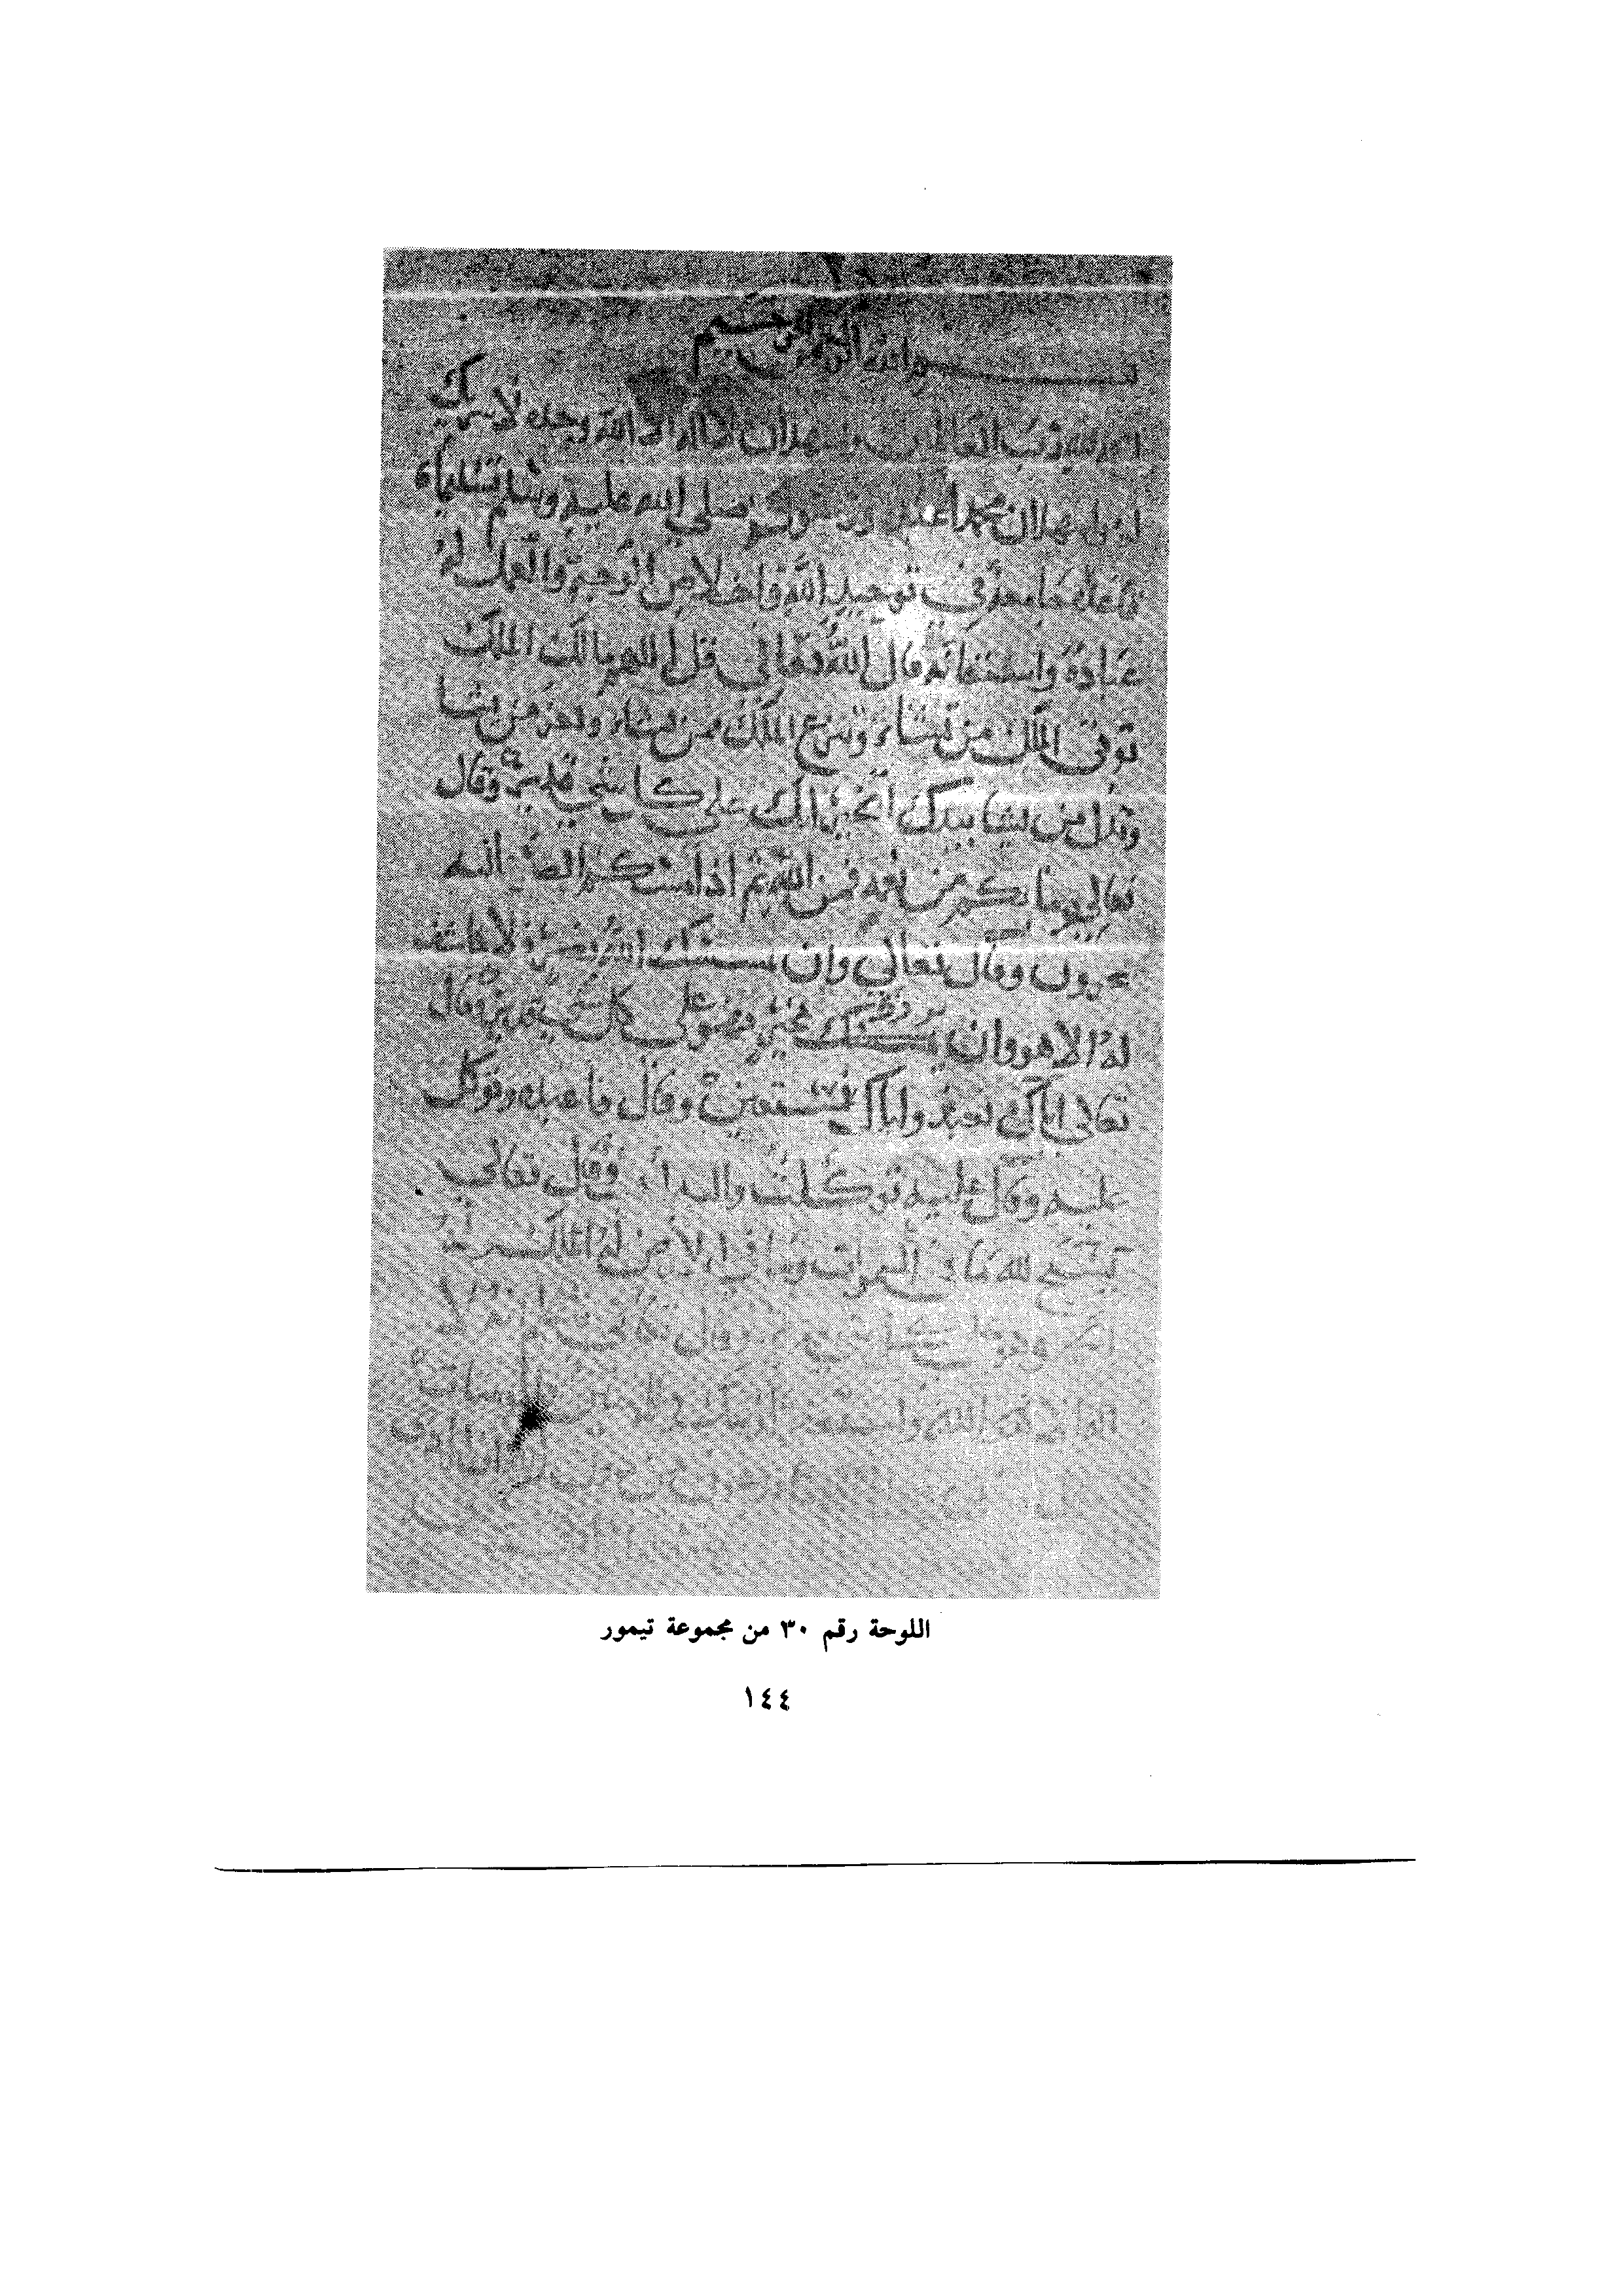 بسم الله الرحمن الرحيم
الحمد لله رب العالمين واشهد ان لا اله الا الله وحده لا شريك
له واشهد ان محمدا عبده ورسوله صلى الله عليه وسلم تسليما
قاعدة جامعة في توحيد الله واخلاص الوجه والعمل له
عبادة واستعانة قال الله تعالى قل اللهم مالك الملك
توتي الملك من تشاء وتنزع الملك ممن تشاء وتعز من تشا
وتذل من تشا بيدك الخير انك على كل شي قدير وقال
تعالى وما بكم من نعمة فمن الله ثم اذا مسكم الضر فاليه
تجرون وقال تعالى وان يمسسك الله بضر فلا كاشف
له الا هو وان يمسسك بخير فهو على كل شي قدير وقال
تعالى اياك نعبد واياك نستعين وقال فاعبده وتوكل
عليه وقال عليه توكلت واليه وقال تعالى
يسبح لله ما في السموات وما في الارض له الملك
وقال تعالى
الا الله واستغفر لذنبك وللمومنين والمومنات
اللوحة رقم ٣٠ من مجموعة تيمور
١٤٤